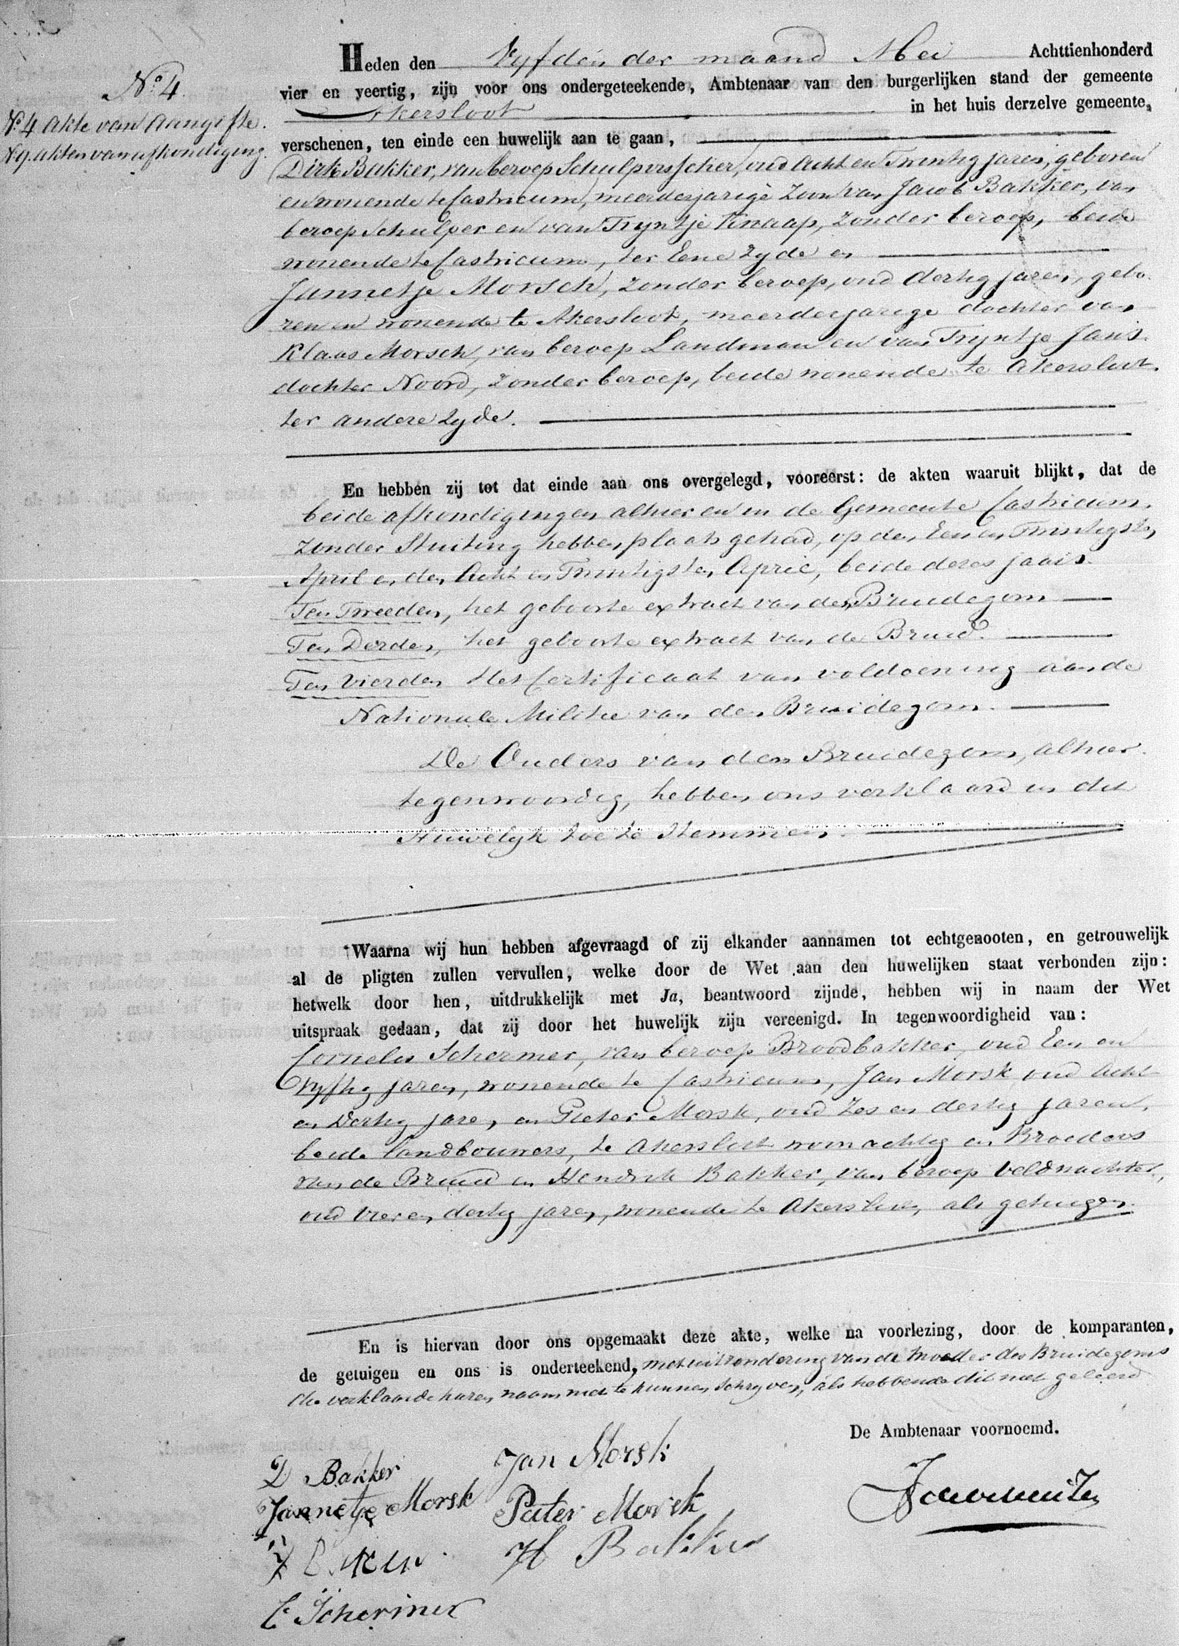 No. 4.
No. 4 Akte van Aangifte.
No. 9. Akten van afkondiging.
Heden den Vyfden der maand Mei Achttienhonderd
vier en veertig, zijn voor ons ondergeteekende, Ambtenaar van den burgerlijken stand der gemeente
Akersloot in het huis derzelve gemeente,
verschenen, ten einde een huwelijk aan te gaan,
Dirk Bakker, van beroep Schulpvisscher, oud Acht en Twintig jaren, geboren
en wonende te Castricum, meerderjarige Zoon van Jacob Bakker, van
beroep Schulper en van Tryntje Knaap, Zonder beroep, beide
wonende te Castricum, ter Eene Zyde en
Jannetje Morsch, Zonder beroep, oud dertig jaren, gebo-
ren en wonende te Akersloot, meerderjarige dochter van
Klaas Morsch, van beroep Landman en van Tryntje Jans-
dochter Noord, Zonder beroep, beide wonende te Akersloot,
ter andere Zyde.
En hebben zij tot dat einde aan ons overgelegd, vooreerst: de akten waaruit blijkt, dat de
beide afkondigingen alhier en in de Gemeente Castricum,
Zonder Stuiting hebben plaats gehad, op den Een en Twintigsten
April en den Acht en Twintigsten April, beide dezes jaars.
Ten Tweeden, het geboorte extract van den Bruidegom
Ten Derden, het geboorte extract van de Bruid.
Ten Vierden Het Certificaat van voldoening aan de
Nationale Militie van den Bruidegom.
De Ouders van den Bruidegom, alhier
tegenwoordig, hebben ons verklaard in dit
Huwelyk toe te Stemmen.
Waarna wij hun hebben afgevraagd of zij elkander aannamen tot echtgenooten, en getrouwelijk
al de pligten zullen vervullen, welke door de Wet aan den huwelijken staat verbonden zijn:
hetwelk door hen, uitdrukkelijk met Ja, beantwoord zijnde, hebben wij in naam der Wet
uitspraak gedaan, dat zij door het huwelijk zijn vereenigd. In tegenwoordigheid van:
Cornelis Schermer, van beroep Broodbakker, oud Een en
Vyftig jaren, wonende te Castricum, Jan Morsk, oud Acht
en Dertig jaren, en Pieter Morsk, oud Zes en dertig jaren,
beide landbouwers, te Akersloot woonachtig en Broeders
van de Bruid en Hendrik Bakker, van beroep Veldwachter,
oud Vier en dertig jaren, wonende te Akersloot, als getuigen.
En is hiervan door ons opgemaakt deze akte, welke na voorlezing, door de komparanten,
de getuigen en ons is onderteekend, met uitzondering van de Moeder des Bruidegoms
die verklaarde haren naam niet te kunnen schryven, als hebbende dit niet geleerd
De Ambtenaar voornoemd.
D Bakker
Jan Morsk
Jannetje Morsk
Pieter Morsk
H Bakker
C Schermer